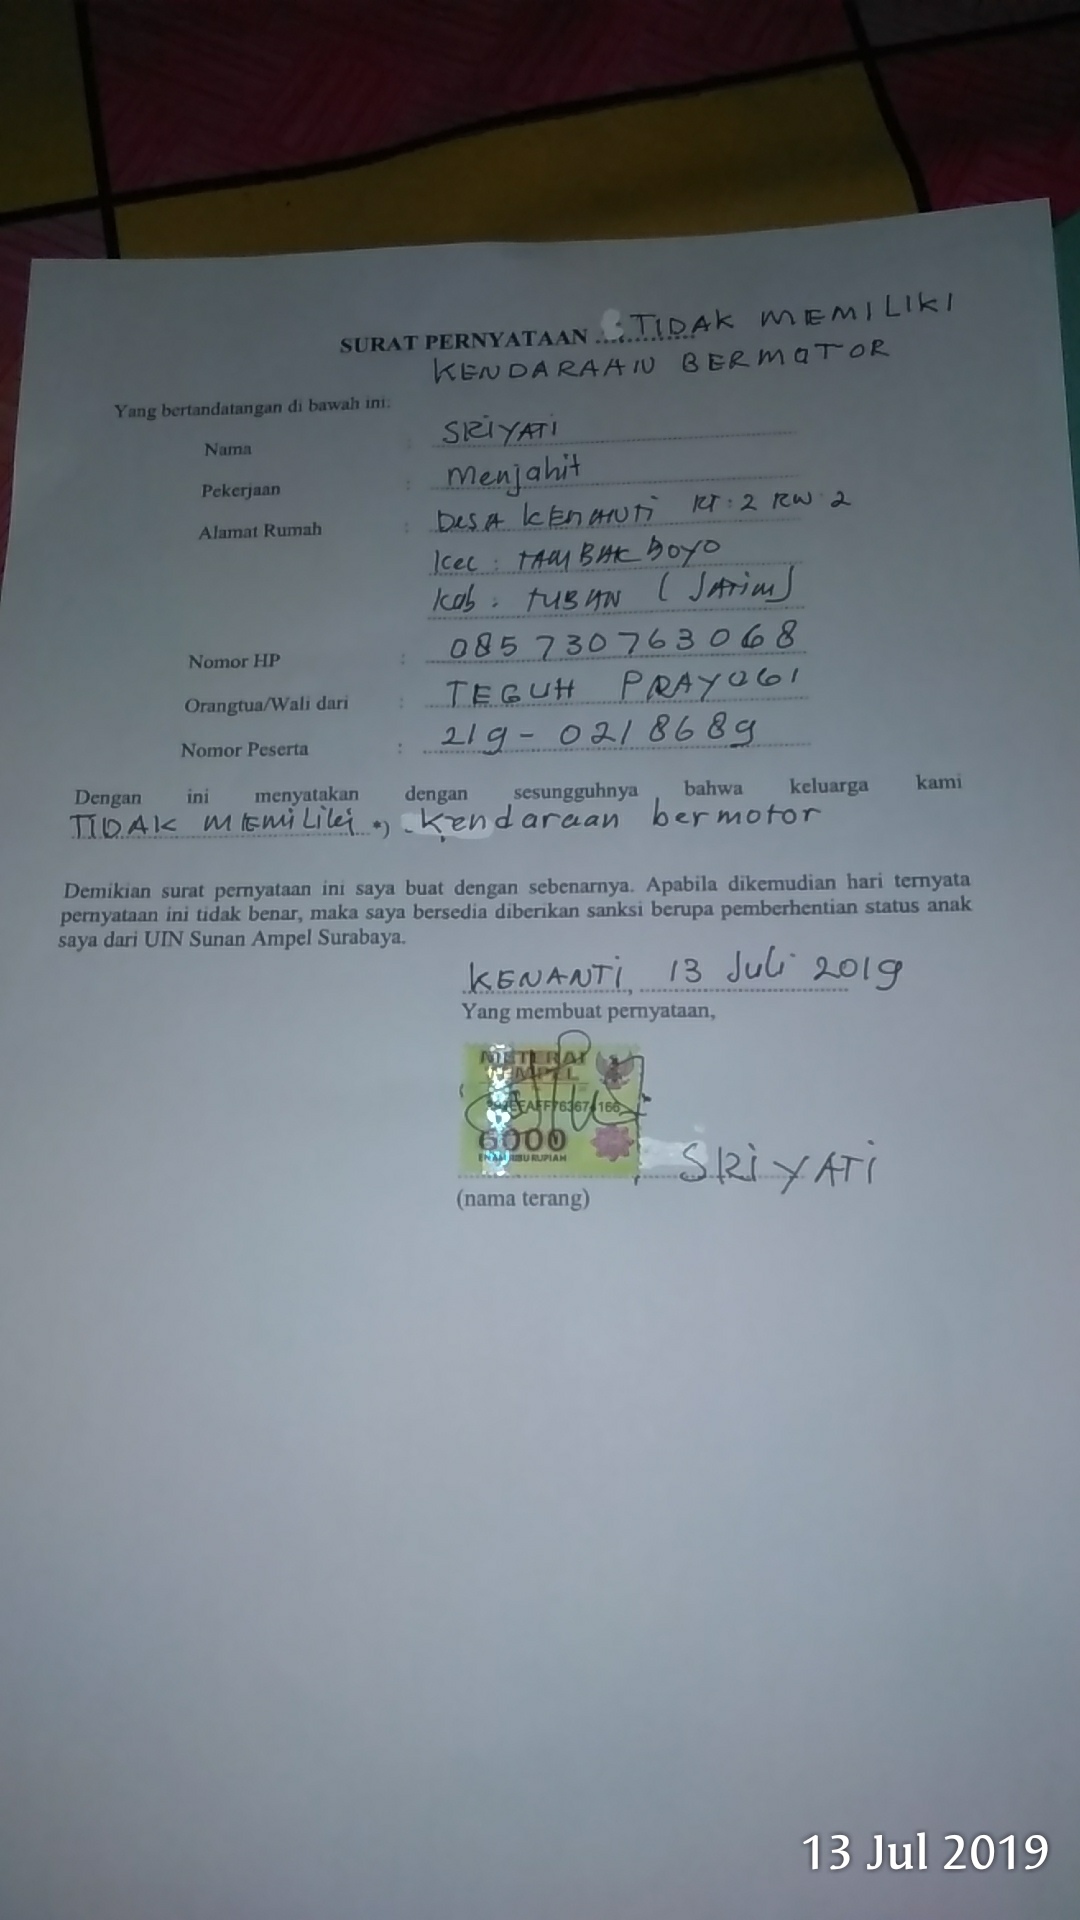 SURAT PERNYATAAN ............ TIDAK MEMILIKI
KENDARAAN BERMOTOR
Yang bertandatangan di bawah ini:
Nama : SRIYATI
Pekerjaan : Menjahit
Alamat Rumah : DESA KENANTI RT : 2 RW : 2
Kec : TAMBAKBOYO
Kab : TUBAN ( JATIM )
Nomor HP : 085730763068
Orangtua/Wali dari : TEGUH PRAYOGI
Nomor Peserta : 219-0218689
Dengan ini menyatakan dengan sesungguhnya bahwa keluarga kami
TIDAK MEMILIKI *) Kendaraan bermotor
Demikian surat pernyataan ini saya buat dengan sebenarnya. Apabila dikemudian hari ternyata
pernyataan ini tidak benar, maka saya bersedia diberikan sanksi berupa pemberhentian status anak
saya dari UIN Sunan Ampel Surabaya.
KENANTI, 13 Juli 2019
Yang membuat pernyataan,
METERAI
TEMPEL
6000
ENAM RIBU RUPIAH
SRIYATI
(nama terang)
13 Jul 2019